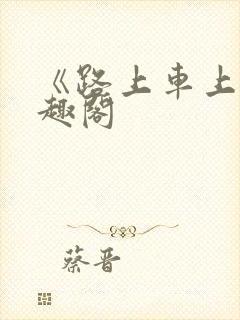 《路上車上
趣閣
蔡晋